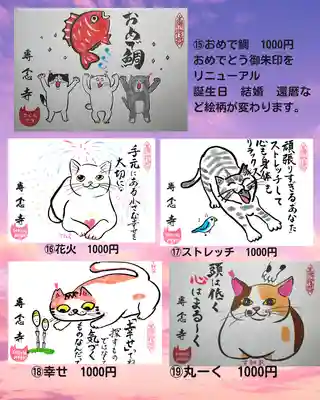 おめで鯛
専念寺
⑮おめで鯛 1000円
おめでとう御朱印を
リニューアル
誕生日 結婚 還暦な
ど絵柄が変わります。
手元にある小さな幸せを
大切に。
専念寺
⑯花火 1000円
頑張りすぎるあなた
ストレッチして
心も身体も
リラックス
専念寺
⑰ストレッチ 1000円
幸せ
探すもの
ではなく
気づく
ものなんだ
専念寺
⑱幸せ 1000円
頭は低く
心はまるーく
専念寺
⑲丸ーく 1000円